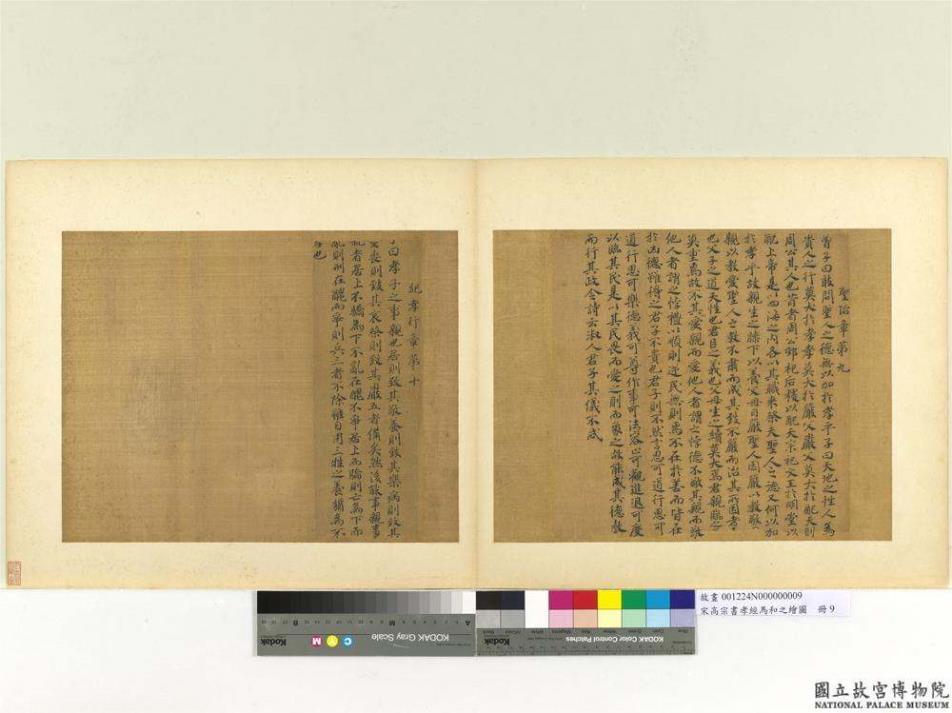 聖治章第九
曾子曰敢問聖人之德無以加於孝乎子曰天地之性人為
貴人之行莫大於孝孝莫大於嚴父嚴父莫大於配天則
周公其人也昔者周公郊祀后稷以配天宗祀文王於明堂以
配上帝是以四海之內各以其職來祭夫聖人之德又何以加
於孝乎故親生之膝下以養父母日嚴聖人因嚴以教敬
親以教愛聖人之教不肅而成其政不嚴而治其所因者
也父子之道天性也君臣之義也父母生之續莫大焉君親臨之
莫重焉故不其愛親而愛他人者謂之悖德不敬其親而敬
他人者謂之悖禮以順則逆民無則焉不在於善而皆在
於凶德雖得之君子不貴也君子則不然言思可道行思可
道行思可樂德義可尊作事可法容止可觀進退可度
以臨其民是以其民畏而愛之則而象之故能成其德教
而行其政令詩云淑人君子其儀不忒
紀孝行章第十
曰孝子之事親也居則致其敬養則致其樂病則致其
喪則致其哀祭則致其嚴五者備矣然後能事親事
親者居上不驕為下不亂在醜不爭居上而驕則亡為下而
亂則刑在醜而爭則兵三者不除雖日用三牲之養猶為不
孝也
Kodak
C Y M
KODAK Gray Scale
KODAK Color Control Patches
Kodak
故畫 001224N000000009
宋高宗書孝經馬和之繪圖 冊 9
國立故宮博物院
NATIONAL PALACE MUSEUM